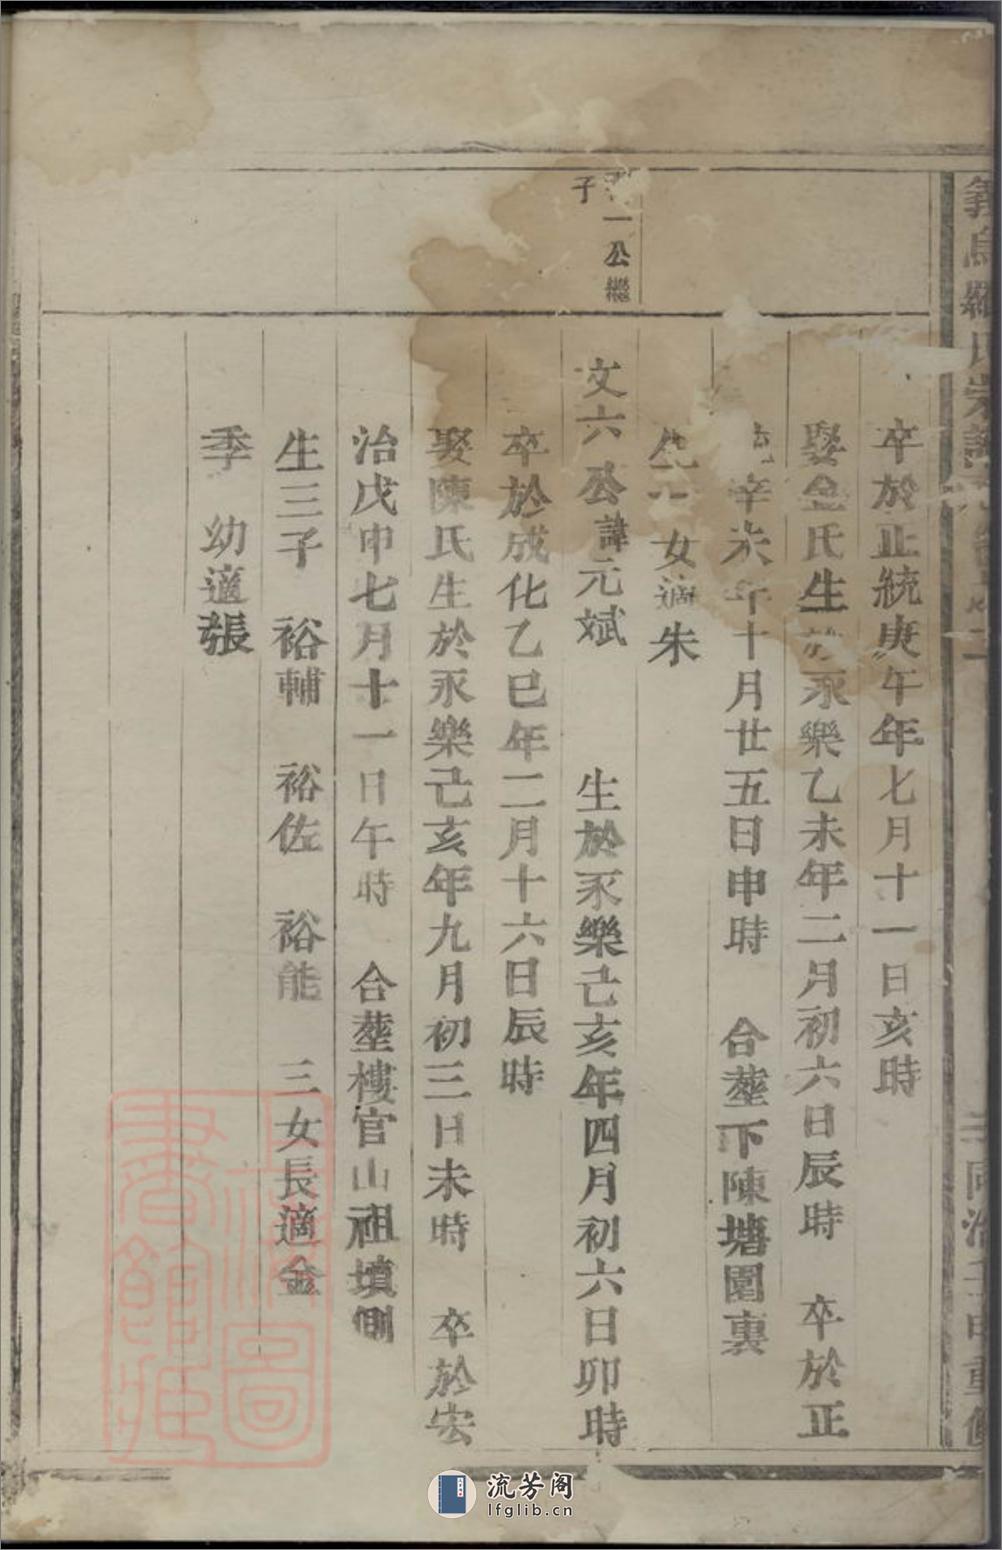 義烏羅氏宗譜
同治壬申重修
卒於正統庚午年七月十一日亥時
娶金氏生於永樂乙未年二月初六日辰時 卒於正
辛未年十月廿五日申時 合塟下陳塘園裏
生 女適朱
一公繼
子
文六公諱元斌 生於永樂己亥年四月初六日卯時
卒於成化乙巳年二月十六日辰時
娶陳氏生於永樂己亥年九月初三日未時 卒於宏
治戊申七月十一日午時 合塟樓官山祖墳側
生三子 裕輔 裕佐 裕能 三女長適金
季 幼適張
上海圖
書館藏
流芳阁
lfglib.cn